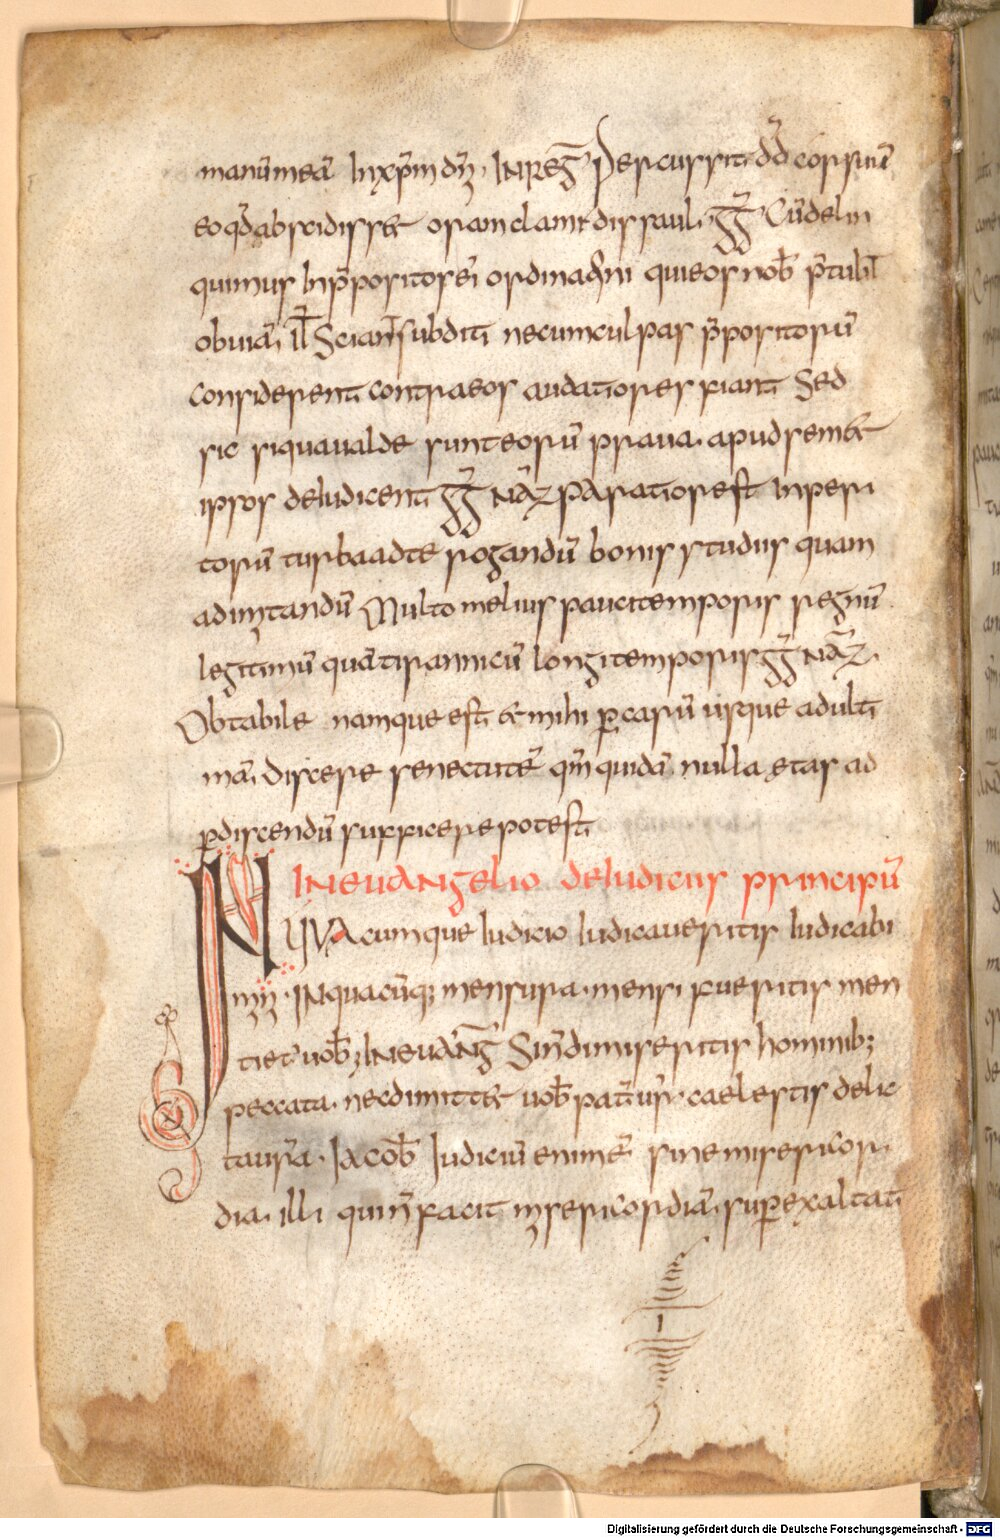 manūmeā Inxp̄m dn̄i. IN REḠ Percussit dd̄ cor suū
eo qd̄ abscidisset oram clamidis saul; gḡ Cū delin
quimus In p̄positos ei ordinationi qui eos nob̄ p̄tulit
obuiam; Iƚ Sciant subditi nec cum culpas p̄positorū
considerent contra eos audatiores fiant Sed
sic siqua ualde sunt eorū praua. apud semet
ipsos deiudicent gḡ NAZ Paratior est Inperi
torū turba ad te rogandū bonis studiis quam
ad imitandū Multo melius pauci temporis regnū
legitimū quā tirannicū longi temporis gḡ NAZ.
Obtabile namque est et mihi p casū usque ad ulti
mā discere senectutē qm̄ quidā nulla etas ad
pdiscendū sufficere potest
IN EUANgelio de Iudiciis principū
IN QUA cumque Iudicio Iudicaueritis Iudicabi
mini. IN qua cūq; mensura. mensi fueritis men
tiet uob̄; IN EUANḠ Si n̄ dimiseritis hominib;
peccata. nec dimittet uob̄ pat̄ ur̄. caelestis delic
ta ur̄a. Iacob̄ Iudiciū enim ē sine misericor
dia. illi qui n̄ facit misericordiā, superexaltat
Digitalisierung gefördert durch die Deutsche Forschungsgemeinschaft - DFG